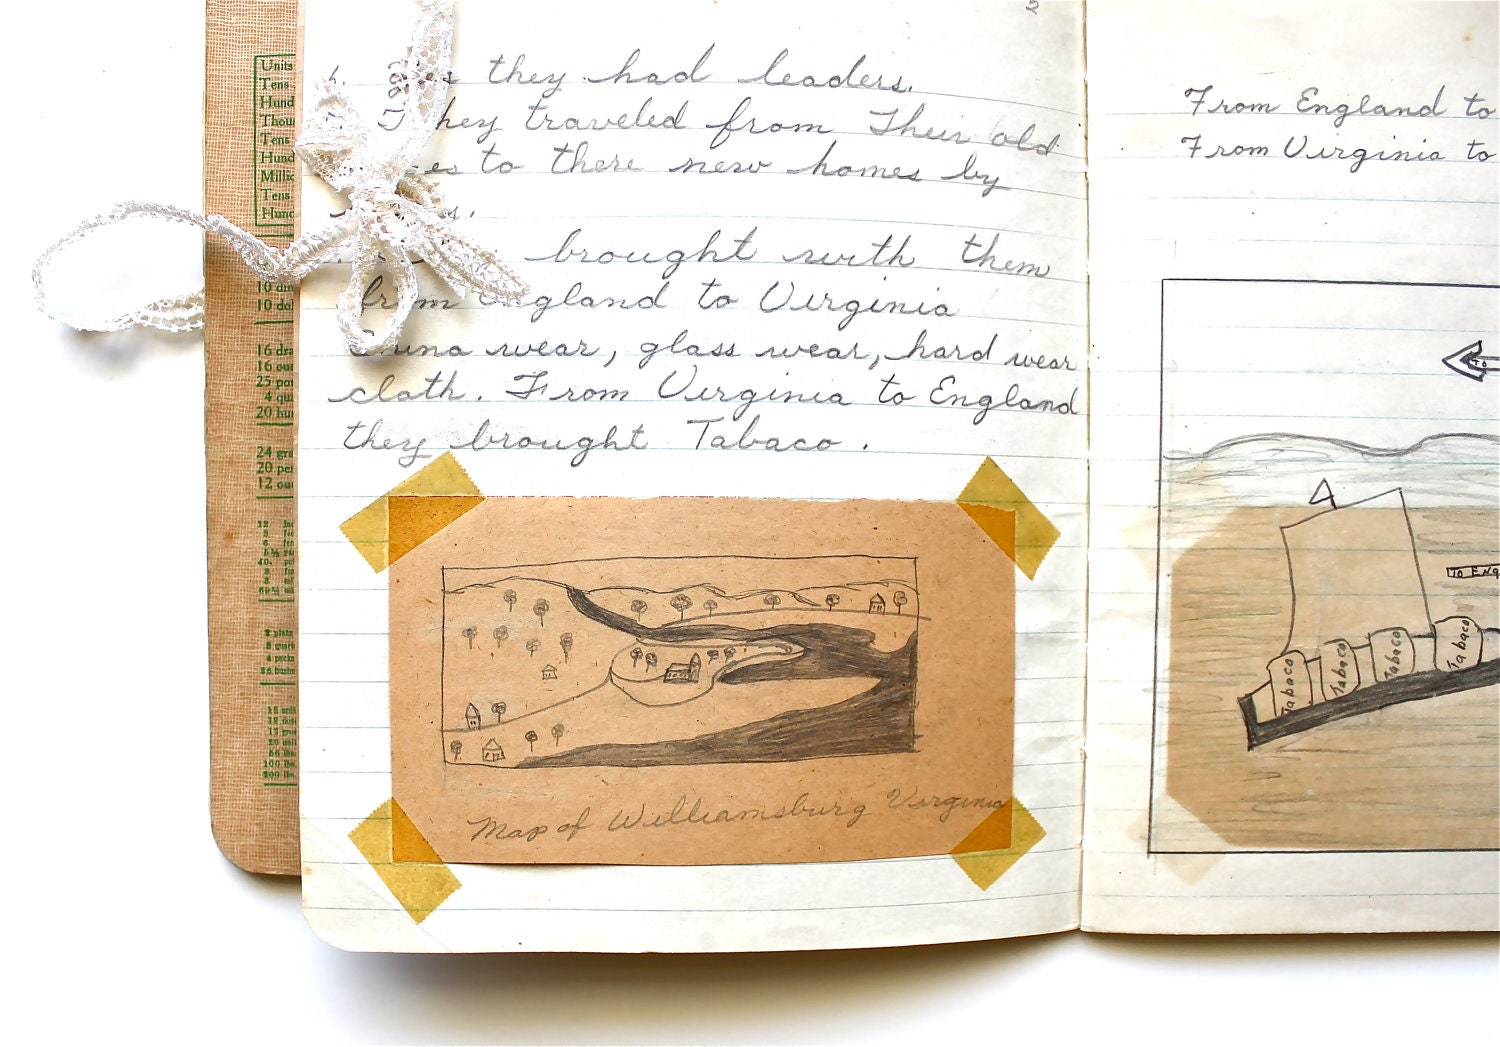 2
they had leaders.
They traveled from Their old
to there new homes by
brought with them
from England to Virginia
China wear, glass wear, hard wear
cloth. From Virginia to England
they brought Tabaco.
Map of Williamsburg Virginia
From England to
From Virginia to
To
To Eng
Tabaco
Tabaco
Tabaco
Tabaco
Units
Tens
Hund
Thou
Tens
Hund
Millio
Tens
Hund
10 di
10 dol
16 dra
16 oun
25 pou
4 qua
20 hun
24 gra
20 pen
12 oun